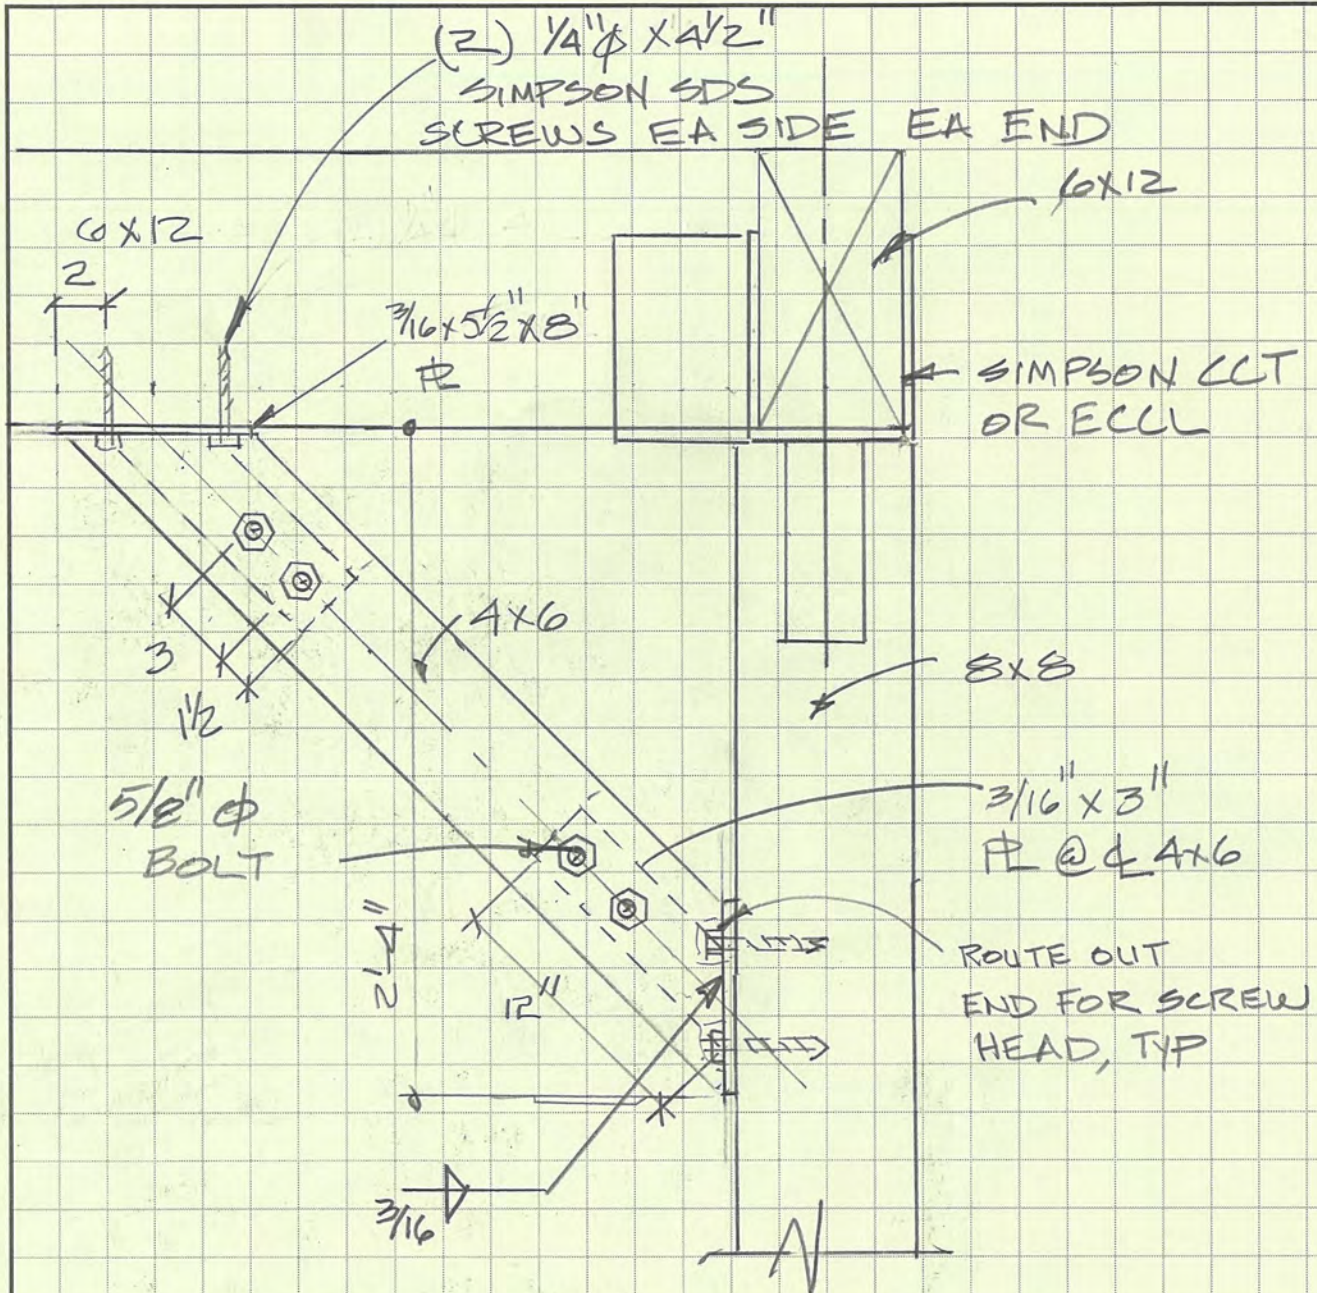 (2) 1/4"ϕ X 4 1/2"
SIMPSON SDS
SCREWS EA SIDE EA END
6X12
6X12
2
3/16 x 5 1/2" x 8"
PL
SIMPSON CCT
OR ECCL
4x6
3
1 1/2
8x8
5/8" ϕ
BOLT
3/16" x 3"
PL @ CL 4x6
2'-4"
12"
ROUTE OUT
END FOR SCREW
HEAD, TYP
3/16